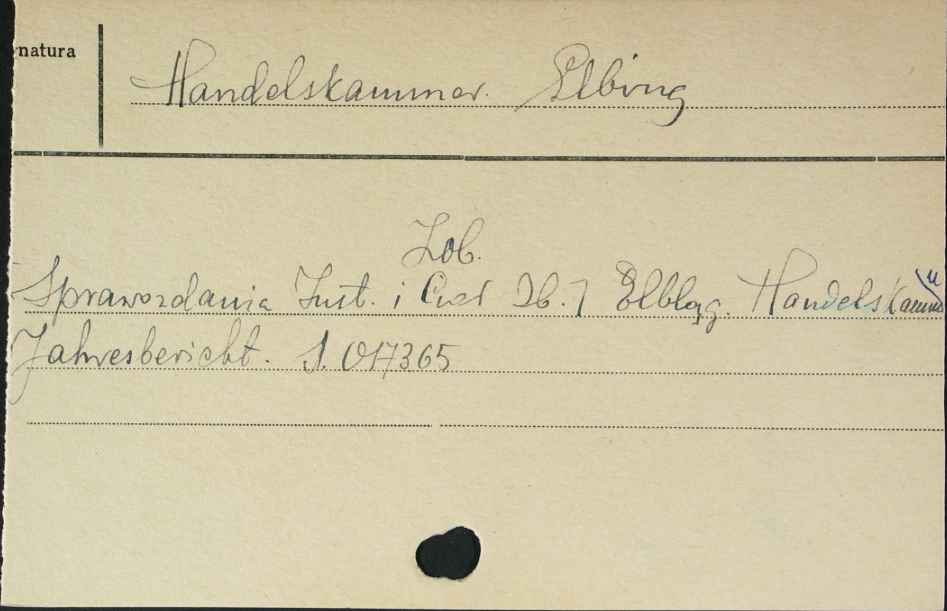 natura
Handelskammer. Elbing
Zob.
Sprawozdania Inst. i Czas Zb. 7 Elbląg. Handelskamm
Jahresbericht. S. 017365